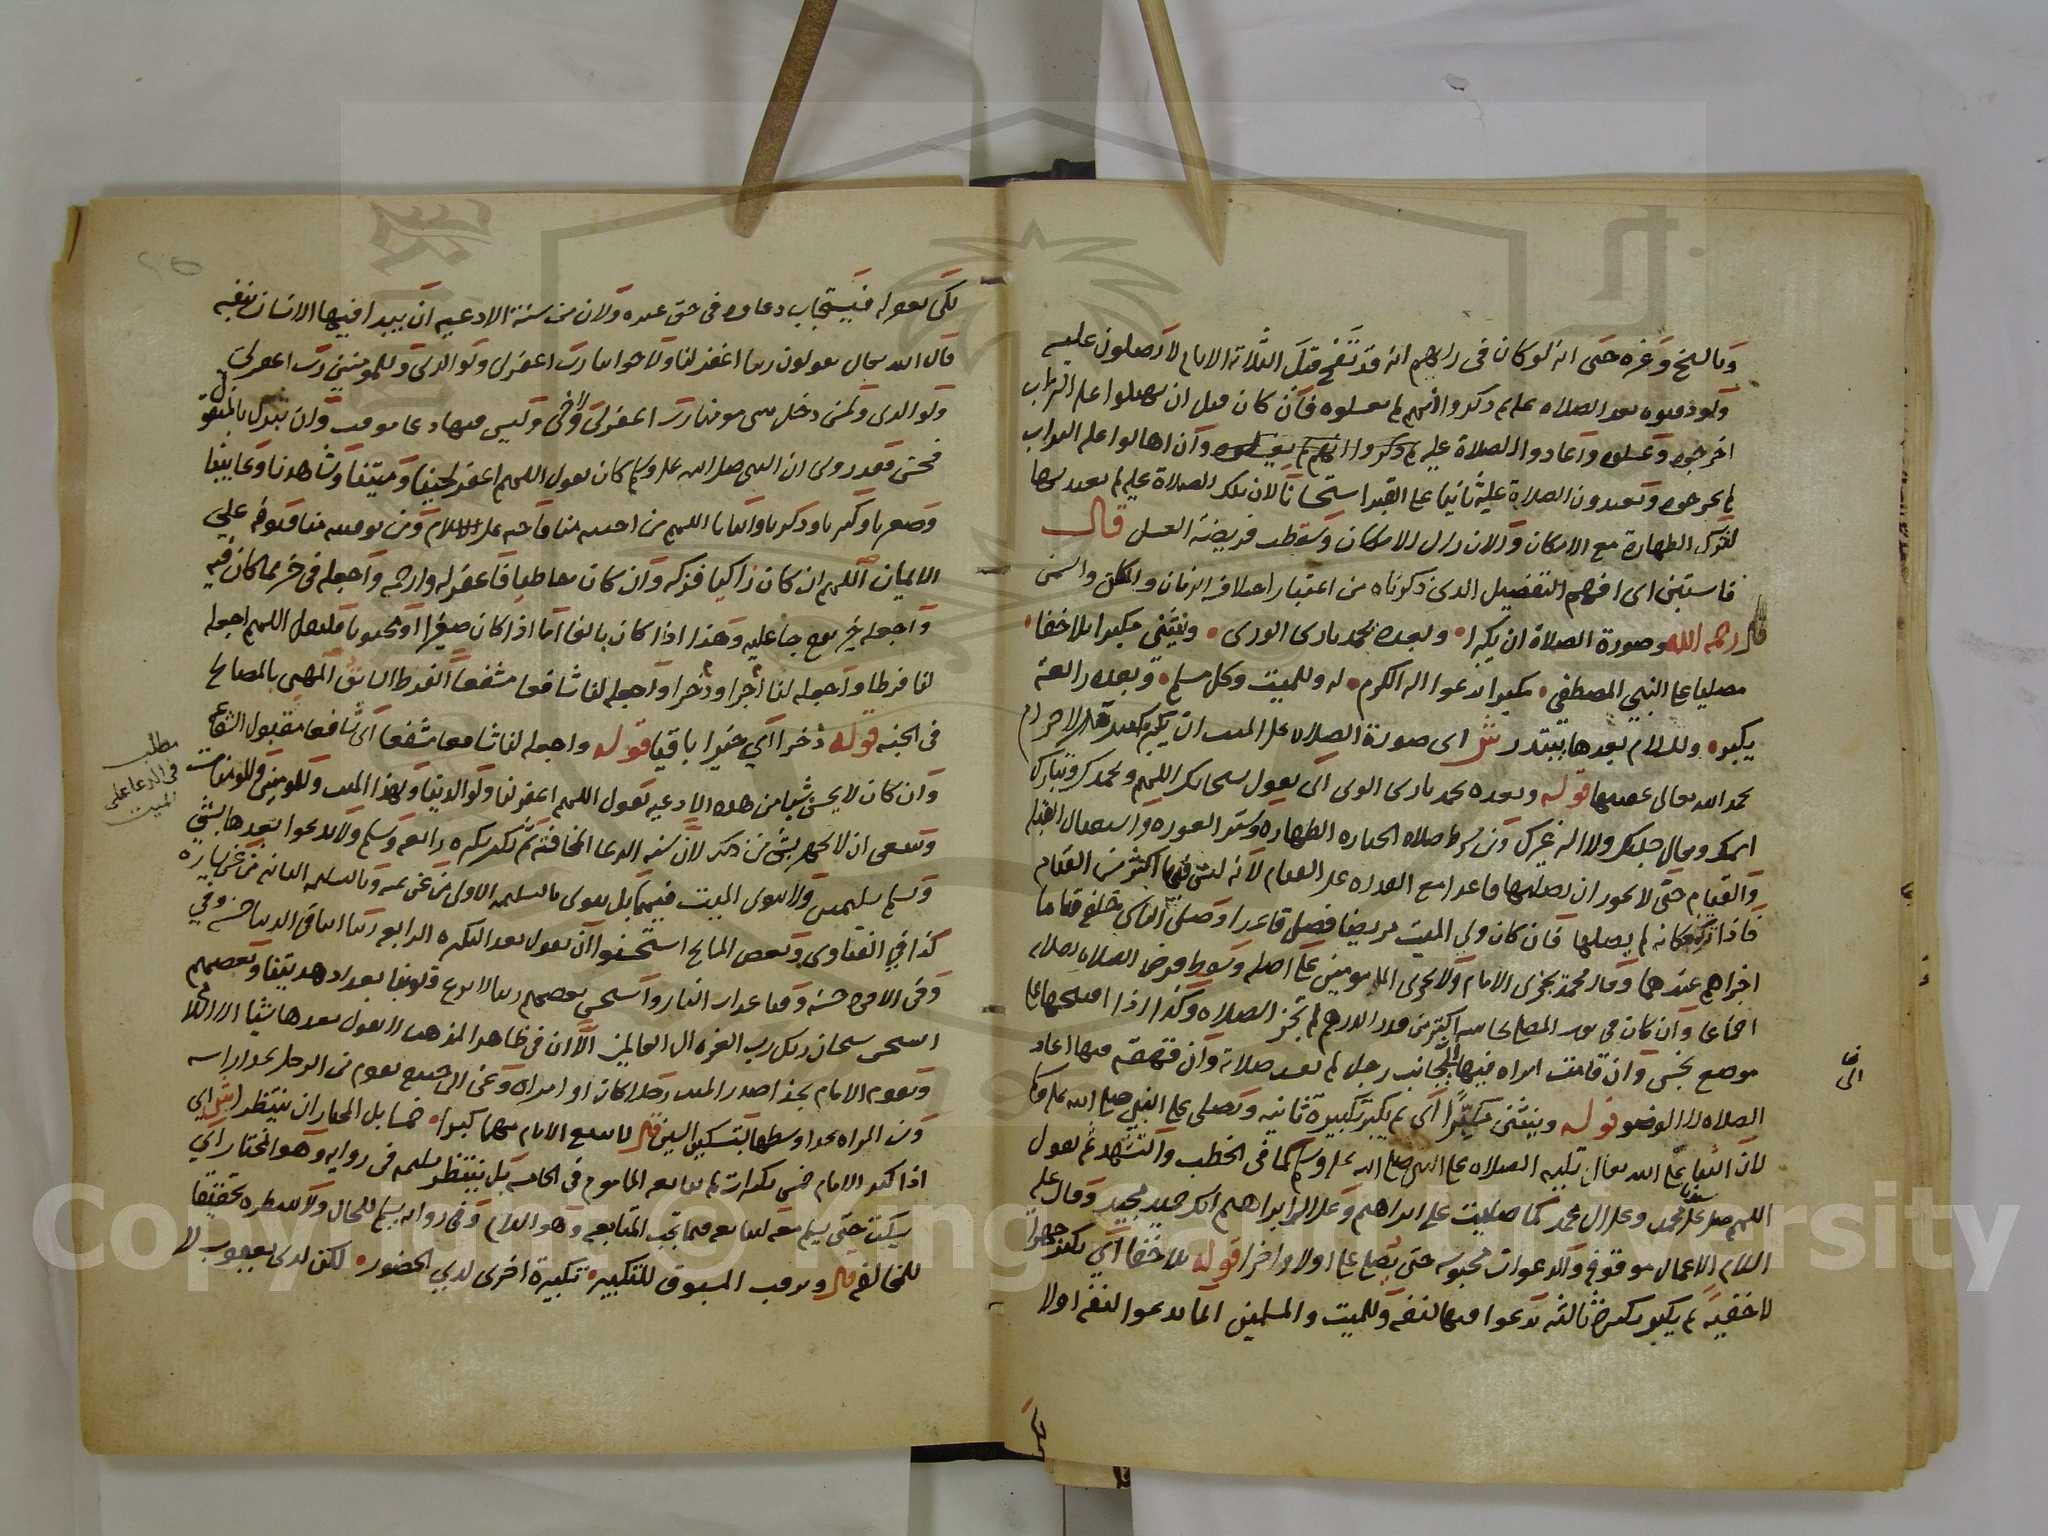 وبالسخ وغيره حتى انه لو كان في رايهم انه قد تفسخ قبل الثلاثة الايام لا يصلون عليه
ولو دفنوه بعد الصلاه عليه ثم ذكروا انهم لم يغسلوه فان كان قبل ان يهيلوا عليه التراب
اخرجوه وغسلوه واعادوا الصلاة عليه وان اهالوا عليه التراب
لم يخرجوه ويعيدون الصلاة عليه ثانيا على القبر استحسانا لان تلك الصلاة عليه لم يعتد بها
لترك الطهارة مع الامكان والان زال الامكان وسقطت فريضة الغسل قال
فاستبن اى افهم التفصيل الذى ذكرناه من اعتبار اختلاف الزمان والمكان والسمن
قال رحمه الله وصورة الصلاة ان يكبرا • وبعده يحمد بارى الورى • وينثنى مكبرا بلا خفا •
مصليا على النبي المصطفى • مكبرا يدعوا اله الكرم • له وللميت وكل مسلم • وبعده رابعة
يكبر • وللسلام بعدها يبتدر ش اى صورة الصلاه على الميت ان يكبر تكبيرة الاحرام
يحمد الله تعالى عقيبها قوله وبعده يحمد بارى الورى اى يقول سبحانك اللهم وبحمدك وتبارك
اسمك وتعالى جدك ولا اله غيرك ومن شرط صلاه الجنازه الطهاره وستر العوره واستقبال القبله
والقيام حتى لا يجوز ان يصليها قاعدا مع القدره على القيام لانه ليس فيها اكثر من القيام
فاذا تركه فكانه لم يصلها فان كان ولي الميت مريضا فصلى قاعدا وصلى الناس خلفه قياما
اجزاهم عندهما وقال محمد يجزى الامام ولا يجزى المامومين على اصله وسقط فرض الصلاه بصلاته
اجماعا وان كان في ثوب المصلى نجاسه اكثر من قدر الدرهم لم تجز الصلاه وكذا اذا افتتحها على
موضع نجس وان قامت امراه فيها الى جانب رجل لم تفسد صلاته وان قهقه فيها اعاد
الصلاه لا الوضو قوله وينثنى مكبرا اى ثم يكبر تكبيرة ثانيه ويصلى على النبي صلى الله عليه وسلم
لان الثنا على الله تعالى تليه الصلاه على النبي صلى الله عليه وسلم كما في الخطب والتشهد ثم يقول
اللهم صل على محمد وعلى ال محمد كما صليت على ابراهيم وعلى ال ابراهيم انك حميد مجيد وقال عليه
السلام الاعمال موقوفه والدعوات محبوسه حتى يصلى علي اولا واخرا قوله بلا خفا اي يكبر جهرا
لا خفيه ثم يكبر تكبيرة ثالثه يدعوا فيها لنفسه وللميت والمسلمين انما يدعوا لنفسه اولا
لكى يغفر له فيستجاب دعاوه في حق غيره ولان من سنة الادعيه ان يبدا فيها الانسان بنفسه
قال الله تعالى يقولون ربنا اغفر لنا ولاخواننا رب اغفرلى ولوالدى وللمومنين رب اغفرلى
ولوالدى ولمن دخل بيتى مومنا رب اغفرلى ولاخى وليس فيها دعا موقت وان تبرك بالمنقول
فحسن فقد روى ان النبي صلى الله عليه وسلم كان يقول اللهم اغفر لحينا وميتنا وشاهدنا وغايبنا
وصغيرنا وكبيرنا وذكرنا وانثانا اللهم من احييته منا فاحيه على الاسلام ومن توفيته منا فتوفه على
الايمان اللهم ان كان زاكيا فزكه وان كان خاطيا فاغفر له وارحمه واجعله في خير مما كان فيه
واجعله خير يوم جا عليه وهذا اذا كان بالغا اما اذا كان صغيرا او مجنونا فليقل اللهم اجعله
لنا فرطا واجعله لنا اجرا وذخرا واجعله لنا شافعا مشفعا الفرط السابق المهيى بالمصالح
في الجنه قوله ذخرا اي خيرا باقيا قوله واجعله لنا شافعا مشفعا اى شافعا مقبول الشفاعه
وان كان لا يحسن شيا من هذه الادعيه يقول اللهم اغفر لنا ولوالدينا ولهذا الميت وللمومنين وللمومنات
وينبغى ان لا يجهر بشى من ذلك لان سنه الدعا المخافته ثم يكبر تكبيره رابعه ويسلم ولا يدعوا بعدها بشى
ويسلم تسليمتين ولا ينوى الميت فيهما بل ينوى بالتسليمه الاولى من عن يمينه وبالتسليمه الثانيه من عن يساره
كذا في الفتاوى وبعض المشايخ استحسنوا ان يقول بعد التكبيره الرابعه ربنا اتنا في الدنيا حسنه وفي
وفي الاخره حسنه وقنا عذاب النار واستحسن بعضهم ربنا لا تزغ قلوبنا بعد اذ هديتنا وبعضهم
استحسن سبحان ربك رب العزه الى العالمين الا ان في ظاهر المذهب لا يقول بعدها شيا الا السلام
ويقوم الامام بحذا صدر الميت رجلا كان او امراه وعن ابى حنيفه يقوم من الرجل بحذا راسه
ومن المراه بحذا وسطها بتسكين السين قال لا يتبع الامام مهما كبرا • خمسا بل المختار ان ينتظرا ش اي
اذا كبر الامام خمس تكبيرات لم يتابعه الماموم في الخامسه بل ينتظر تسليمه في روايه وهو المختار اي
يسكت حتى يسلم معه ليتابعه فيما تجب المتابعه وهو السلام وفي روايه يسلم للحال ولا ينتظره تحقيقا
للمخالفه قال ويرقب المسبوق للتكبير • تكبيرة اخرى لدى الحضور • لكن لدى يعقوب لا
مطلب
في الدعا على
الميت